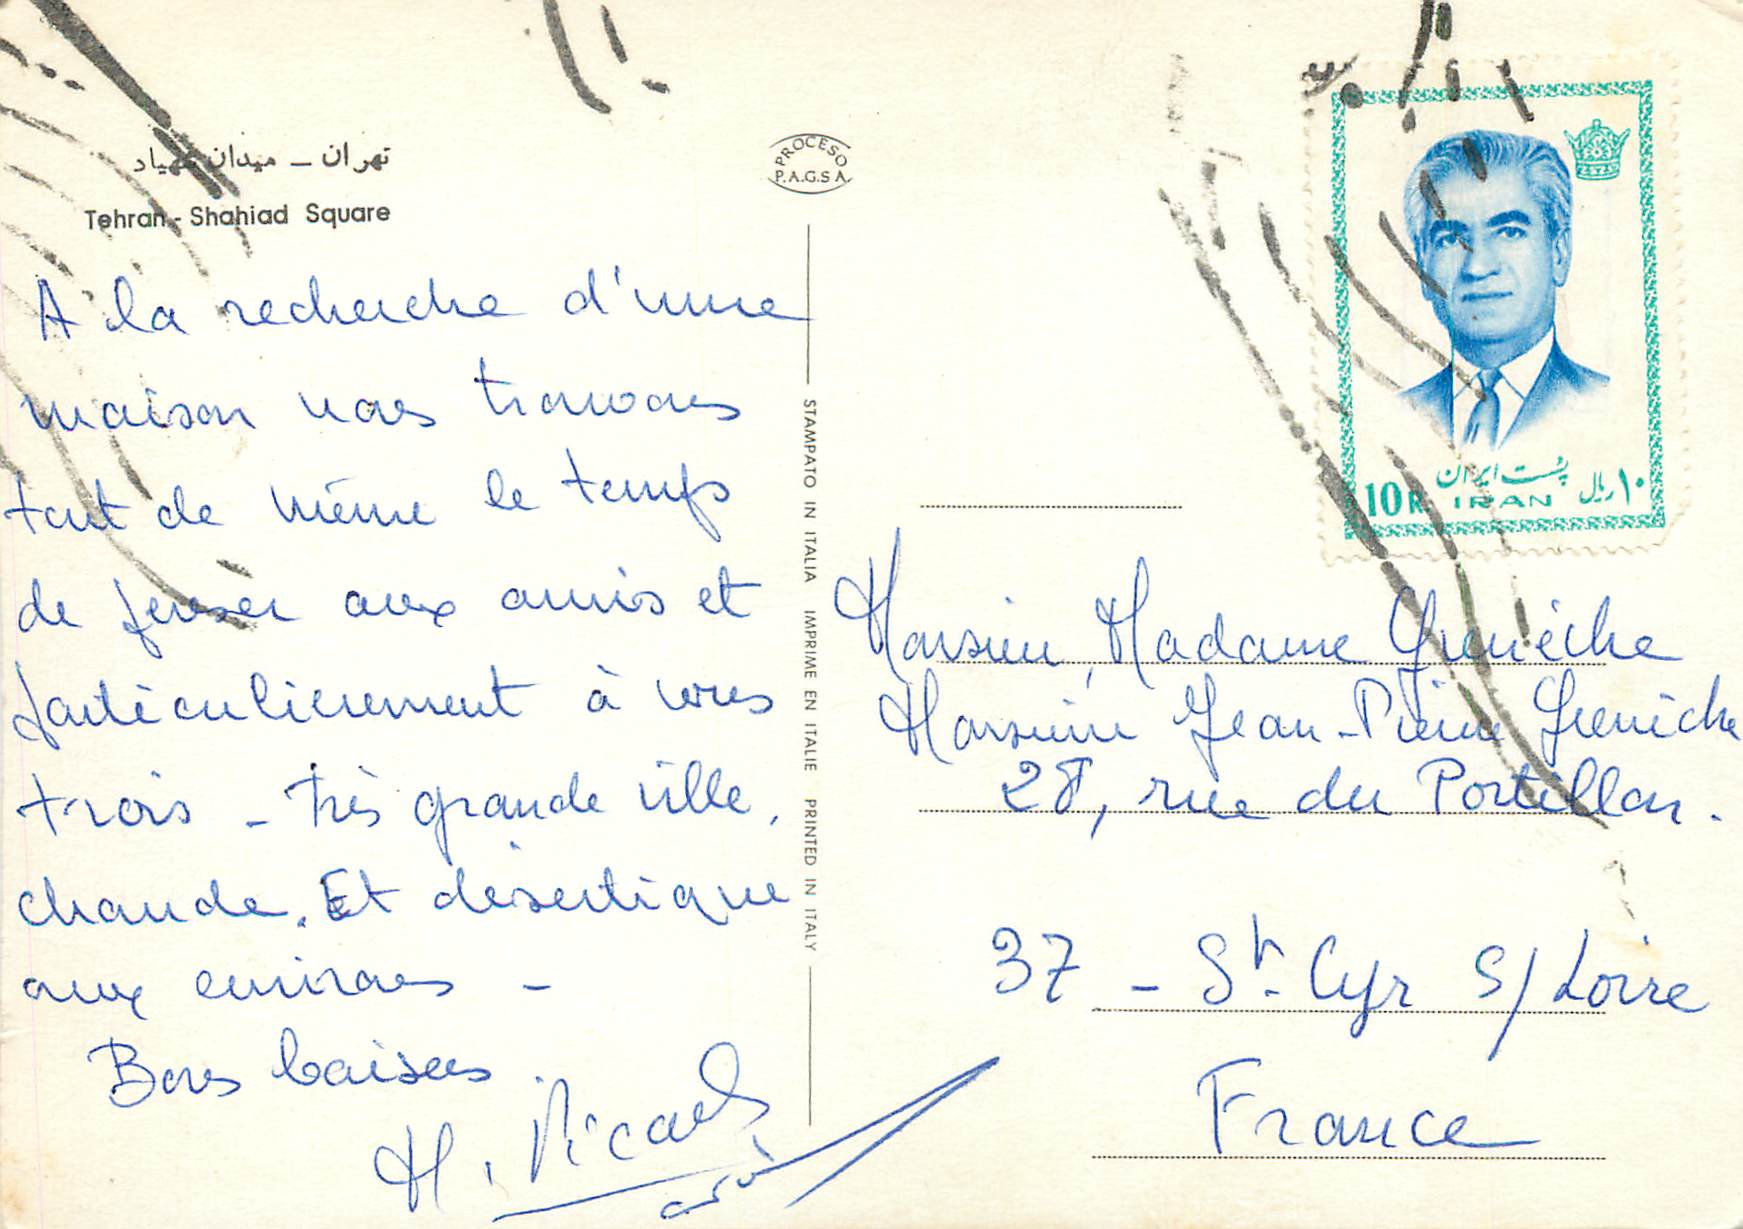 تهران – میدان شهیاد
Tehran - Shahiad Square
A la recherche d'une
maison nous trouvons
tout de même le temps
de penser aux amis et
particulièrement à vous
trois - très grande ville,
chaude. Et désertique
aux environs -
Bons baisers.
PROCESO
P.A.G.S.A.
STAMPATO IN ITALIA IMPRIME EN ITALIE PRINTED IN ITALY
پست ایران
10 R. IRAN ۱۰ ریال
Monsieur, Madame
Monsieur Jean-Pierre
28, rue du Portillon.
37 - St. Cyr S/Loire
France